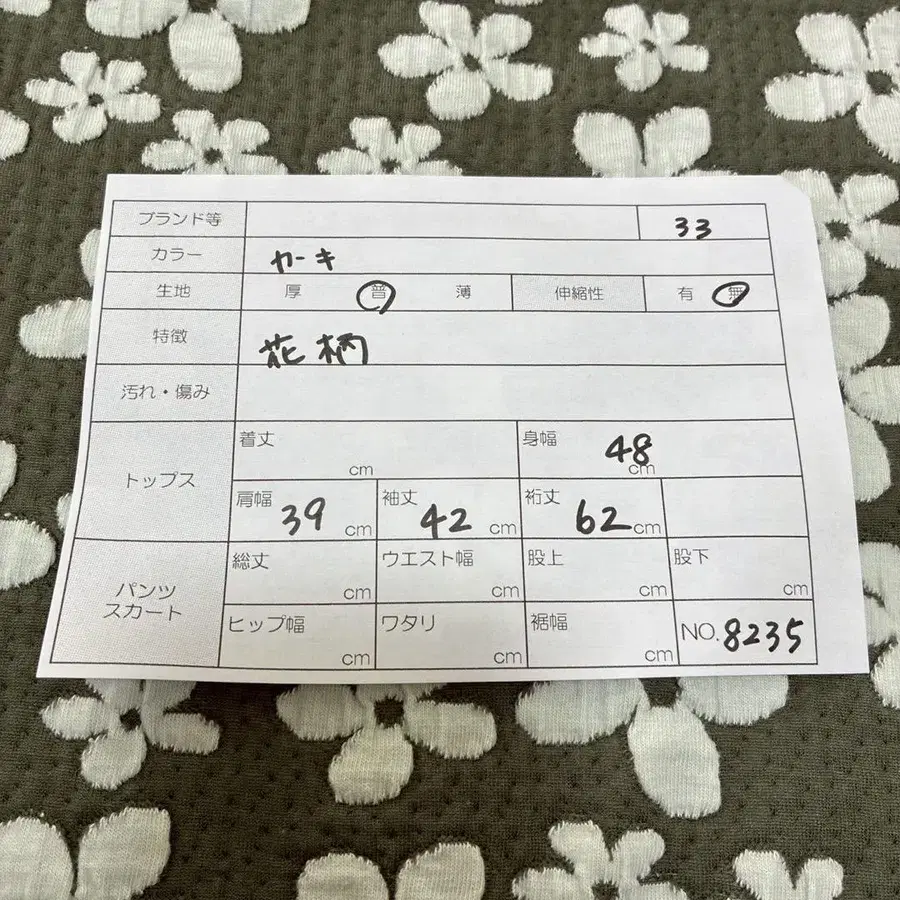 ブランド等 33
カラー カーキ
生地 厚 普 薄 伸縮性 有 無
特徴 花柄
汚れ・傷み
トップス
着丈 cm 身幅 48 cm
肩幅 39 cm 袖丈 42 cm 裄丈 62 cm
パンツ
スカート
総丈 cm ウエスト幅 cm 股上 cm 股下 cm
ヒップ幅 cm ワタリ cm 裾幅 cm NO. 8235